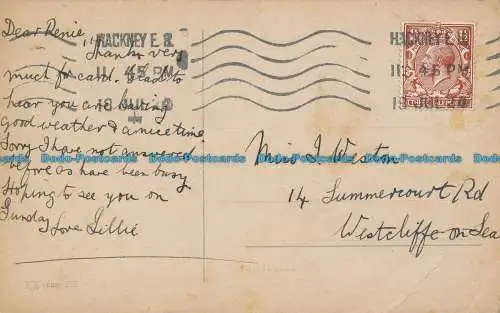 Dear Renie,
Thanks very
much for card. Glad to
hear you are having
good weather & a nice time.
Sorry I have not answered
before as have been busy
Hoping to see you on
Sunday
Love Lillie
HACKNEY E.8.
11 45 PM
18 JUL
HACKNEY E.8.
11 45 PM
18 JUL
Miss I. Weston
14 Summercourt Rd
Westcliffe-on-Sea
Dodo-Postcards Dodo-Postcards Dodo-Postcards Dodo-Postcards Dodo-Postcards